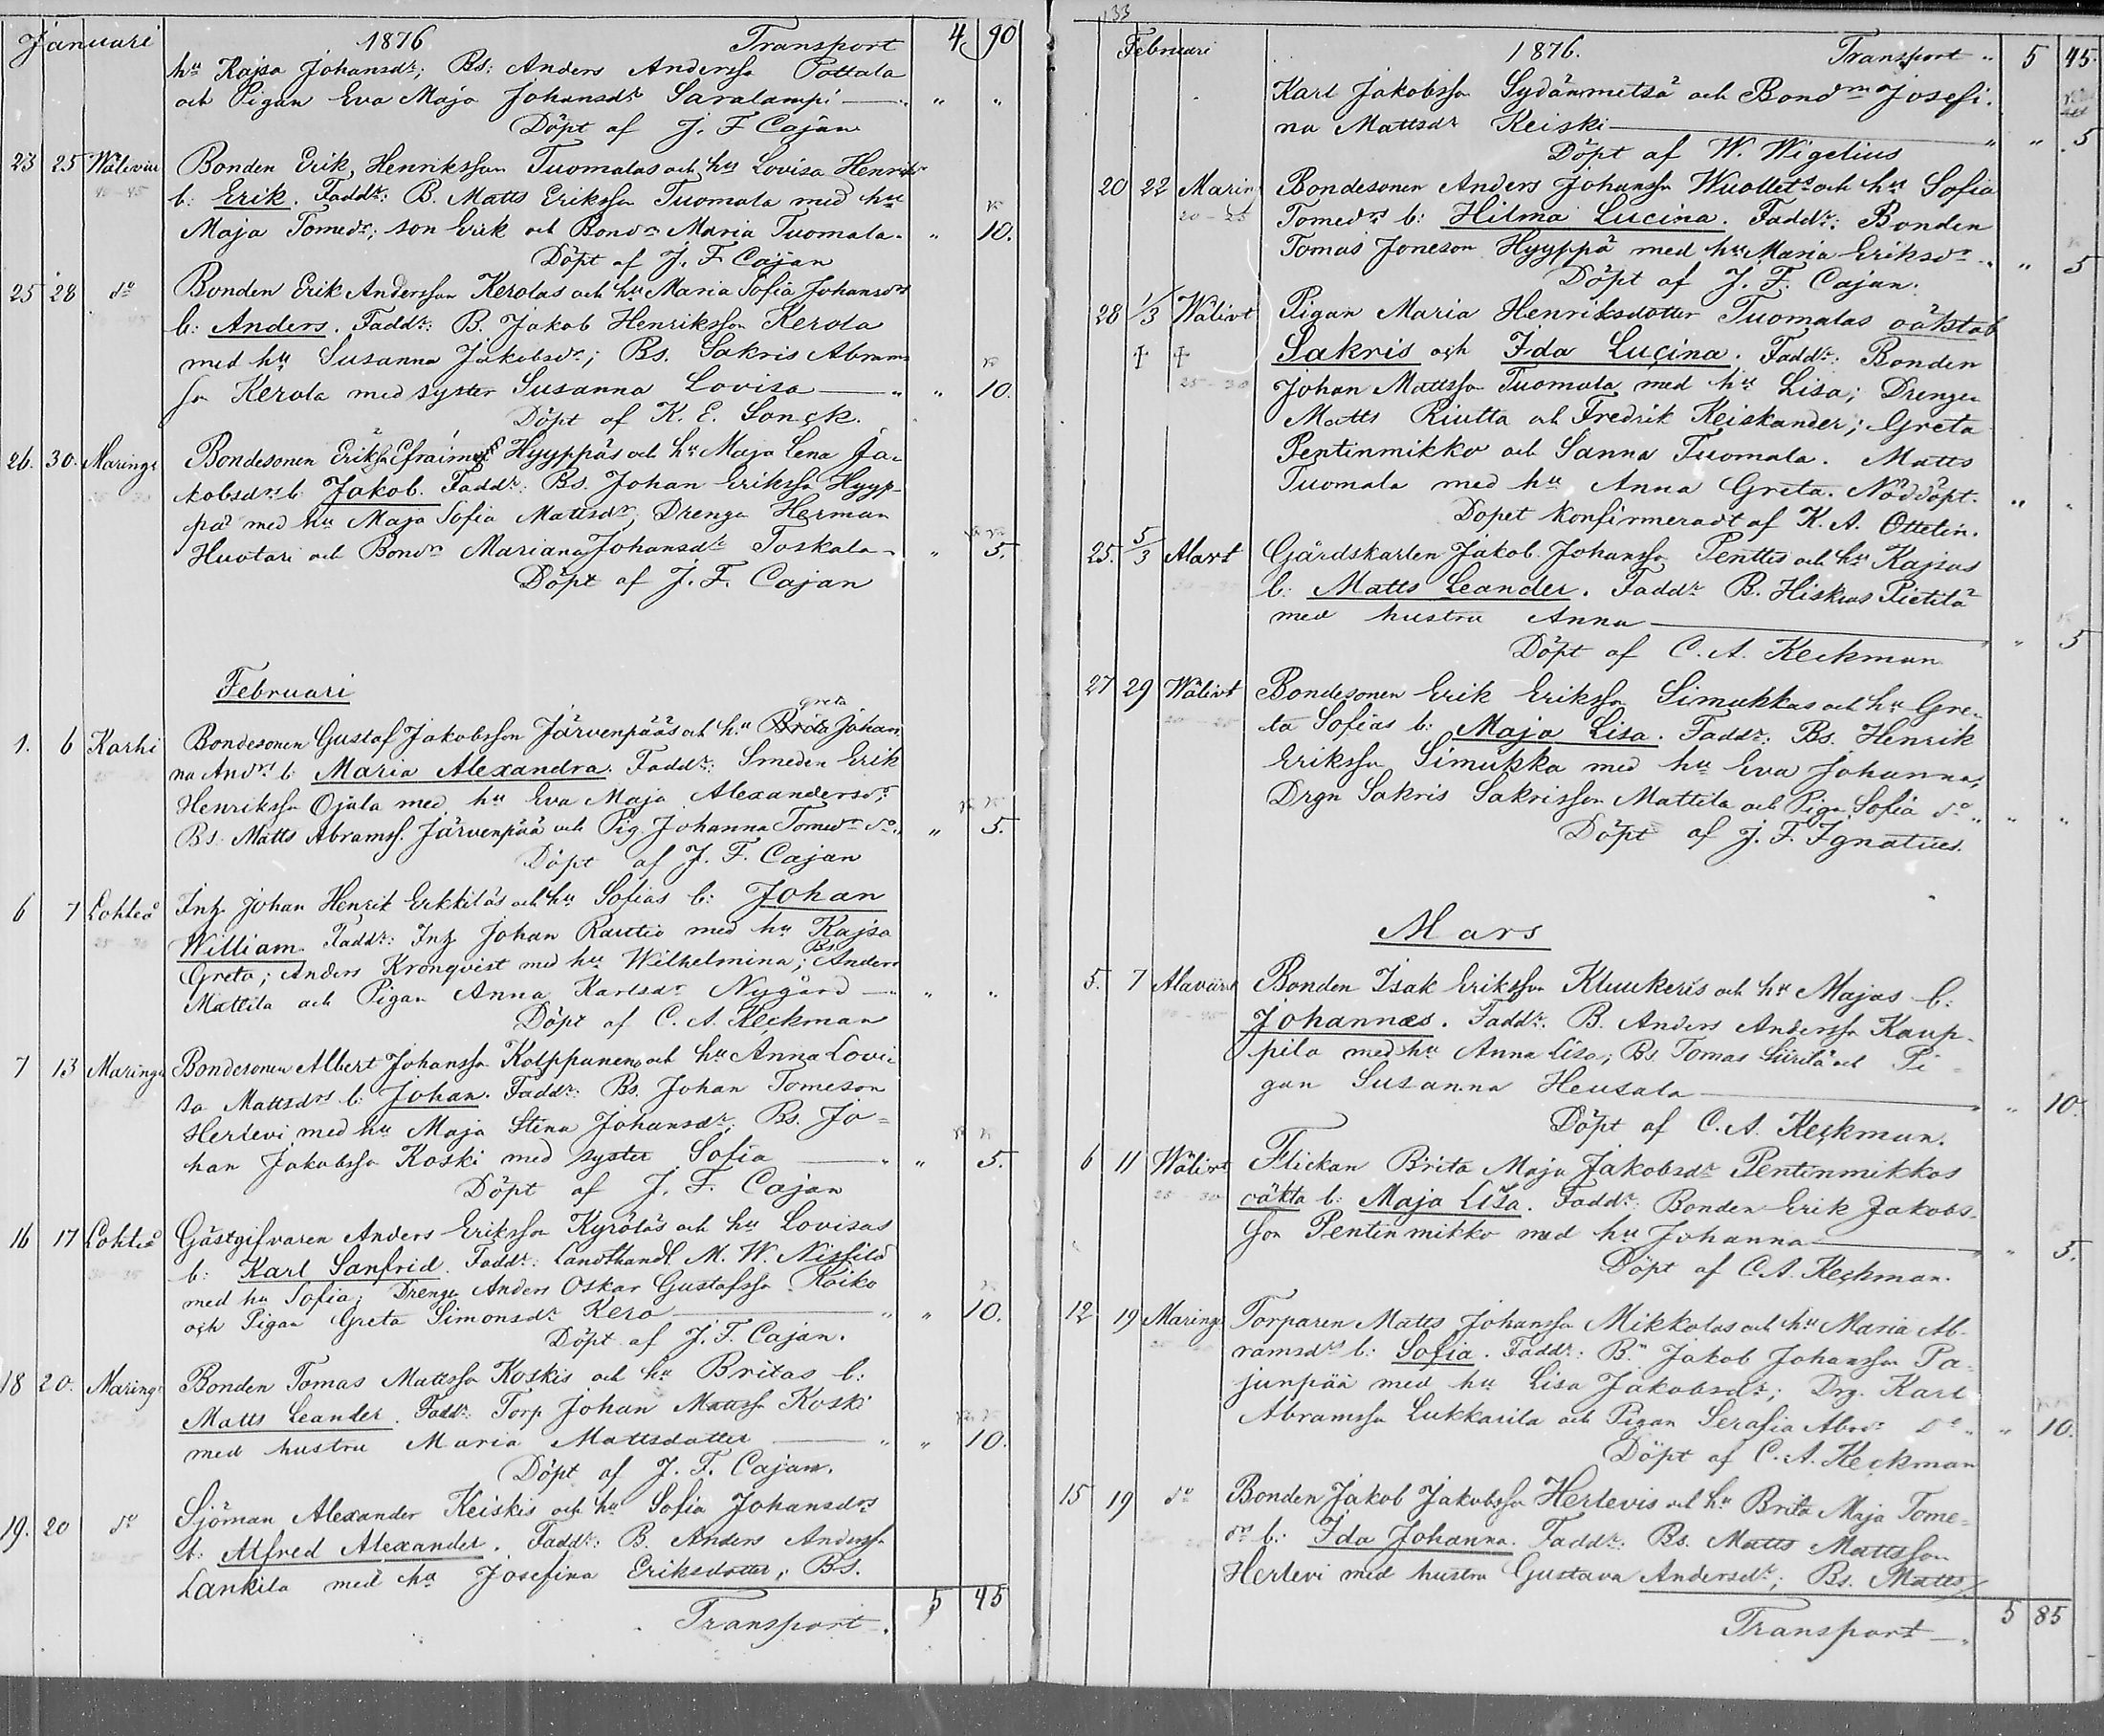 Januari 1876 Transport 4 90
hu Kajsa Johansdr; Bs: Anders Anderssn Pottala
och Pigan Eva Maja Johansdr Saralampi — " "
Döpt af J. F Cajan
23 25 Wälivieri Bonden Erik Henriksson Tuomalas och hu Lovisa Henriksdrs
40-45 b: Erik. Faddr: B. Matts Eriksson Tuomala med hu
Maja Tomedr; son Erik och Bondr Maria Tuomala. " 10.
Döpt af J. F. Cajan
25 28 do Bonden Erik Andersson Kerolas och hu Maria Sofia Johansdrs
b: Anders. Faddr: B. Jakob Henriksson Kerola
med hu Susanna Jakobsdr; Bs. Sakris Abrams
sn Kerola med syster Susanna Lovisa — " " 10.
Döpt af K. E. Sonck.
26. 30. Maringe Bondesonen Eriks Efraimss Hyyppäs och hu Maja Lena Ja-
kobsdrs b. Jakob. Faddr: Bs. Johan Erikssn Hyyp-
pä med hu Maja Sofia Mattsdr, Drengn Herman
Huotari och Bondr Mariana Johansdr Toskala " 5.
Döpt af J. F. Cajan
Februari
Greta
1. 6 Karhi Bondesonen Gustaf Jakobsson Järvenpääs och hu Brita Johan
na Andrs b: Maria Alexandra. Faddr: Smeden Erik
Henrikssn Ojala med hu Eva Maja Alexandersdr;
Bs. Matts Abramss. Järvenpää och Pig. Johanna Tomedr do " " 5.
Döpt af J. F. Cajan
6 7 Lohteå Inh. Johan Henrik Erkkiläs och hu Sofias b: Johan
25-30 William. Faddr: Inh Johan Rautio med hu Kajsa
Bs.
Greta; Anders Kronqvist med hu Wilhelmina; Anders
Mattila och Pigan Anna Karlsdr Nygård — " "
Döpt af C. A. Keckman
7 13 Maringe Bondesonen Albert Johanssn Kolppanens och hu Anna Lovi-
sa Mattsdrs b: Johan. Faddr: Bs. Johan Tomeson
Herlevi med hu Maja Stina Johansdr; Bs. Jo-
han Jakobssn Koski med syster Sofia — " " 5.
Döpt af J. F. Cajan
16 17 Lohteå Gästgifvaren Anders Eriksson Kyröläs och hu Lovisas
30-35 b: Karl Sanfrid. Faddr: Landthandl. M. W. Nissilä
med hu Sofia; Drengn Anders Oskar Gustafssn Roiko
och Pigan Greta Simonsdr Kero — " " 10.
Döpt af J. F. Cajan.
18 20. Maringe Bonden Tomas Mattssn Koskis och hu Britas b:
Matts Leander. Faddr: Torp Johan Mattssn Koski
med hustru Maria Mattsdotter — " " 10.
Döpt af J. F. Cajan.
19. 20 do Sjöman Alexander Keiskis och hu Sofia Johansdrs
b: Alfred Alexander. Faddr: B. Anders Anderssn
Lankila med hu Josefina Eriksdotter; Bs.
Transport 5 45
133
Februari 1876. Transport " 5 45.
Karl Jakobssn Sydänmetsä och Bondm Josefi-
na Mattsdr Keiski — " " 5
Döpt af W. Wigelius
20 22 Maring Bondesonen Anders Johanssn Wuollets och hu Sofia
20-25 Tomedrs b: Hilma Lucina. Faddr: Bonden
Tomas Joneson Hyyppä med hu Maria Eriksdr " " 5
Döpt af J. F. Cajan.
28 1/3 Wälivt Pigan Maria Henriksdotter Tuomalas oäkta b
Sakris och Ida Lucina. Faddr: Bonden
25-30 Johan Mattssn Tuomala med hu Lisa; Drengen
Matts Riutta och Fredrik Keiskander; Greta
Pentinmikko och Sanna Tuomala. Matts
Tuomala med hu Anna Greta. Nöddöpt. " "
Dopet konfirmeradt af K. A. Ottelin.
25. 5/3 Alavt Gårdskarlen Jakob Johanssn Penttis och hu Kajsas
b: Matts Leander. Faddr B. Hiskias Pietilä
med hustru Anna — " 5
Döpt af C. A. Keckman
27 29 Wälivt Bondesonen Erik Erikssn Simukkas och hu Gre-
20-25 ta Sofias b: Maja Lisa. Faddr: Bs. Henrik
Erikssn Simukka med hu Eva Johanna,
Drgn Sakris Sakrisson Mattila och Pign Sofia do " " "
Döpt af J. F. Ignatius.
Mars
5. 7 Alaviirt Bonden Isak Eriksson Kluukeris och hu Majas b:
Johannes. Faddr. B. Anders Anderssn Kaup-
pila med hu Anna Lisa; Bs Tomas Siirilä och Pi-
gan Susanna Heusala — " " 10.
Döpt af C. A. Keckman.
6 11 Wälivt Flickan Brita Maja Jakobsdr Pentinmikkos
25-30 oäkta b: Maja Lisa. Faddr: Bonden Erik Jakobs-
son Pentinmikko med hu Johanna — " " 5.
Döpt af C. A. Keckman.
12 19 Maringe Torparen Matts Johanssn Mikkolas och hu Maria Ab-
ramsdrs b: Sofia. Faddr: Bn Jakob Johanssn Pa-
junpää med hu Lisa Jakobsdr; Drg. Karl
Abramssn Lukkarila och Pigan Serafia Abrdr do " " 10.
Döpt af C. A. Keckman
15 19 do Bonden Jakob Jakobssn Herlevis och hu Brita Maja Tome-
drs b: Ida Johanna. Faddr: Bs. Matts Mattsson
Herlevi med hustru Gustava Andersdr; Bs. Matts
Transport — " 5 85